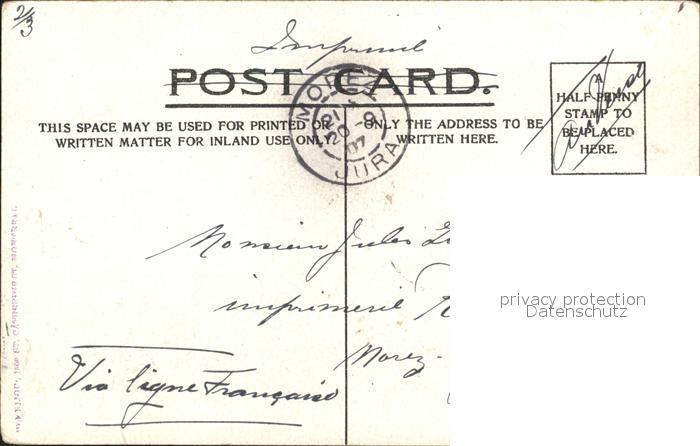 2/3
Imprimé
POST CARD.
THIS SPACE MAY BE USED FOR PRINTED OR
WRITTEN MATTER FOR INLAND USE ONLY
ONLY THE ADDRESS TO BE
WRITTEN HERE.
A
HALF PENNY
STAMP TO
BE PLACED
HERE.
MOREZ
20 -9
07
JURA
Monsieur Jules
imprimeril
Morez-
Via ligne Française
privacy protection
Datenschutz